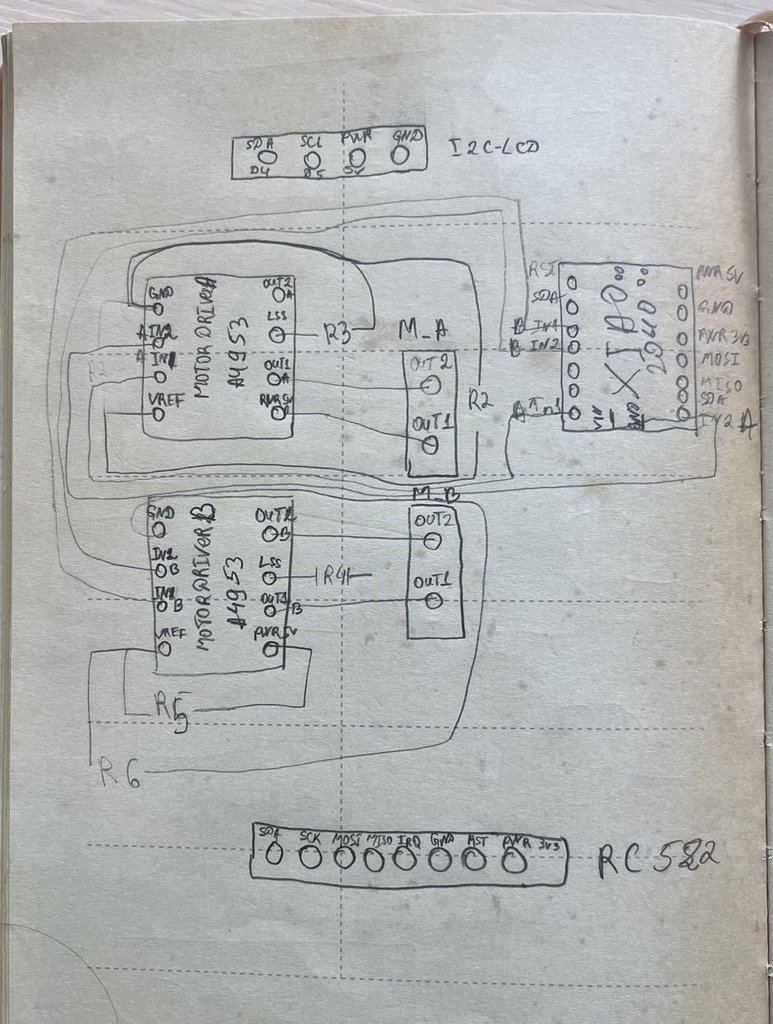 SDA SCL PWR GND
D4 D5 5V
I2C-LCD
GND
A IN2
A IN1
VREF
MOTOR DRIVER A
A4953
OUT2
A
LSS
OUT1
A
PWR5V
R3
R2
M_A
OUT2
OUT1
R2
RST
SDA
B IN1
B IN2
A In1
XIAO
2040
VIN
GND
PWR 5V
GND
PWR 3V3
MOSI
MISO
SDA
IN2 A
GND
IN2
B
IN1
B
VREF
MOTOR DRIVER B
A4953
OUT2
B
LSS
OUT1
B
PWR5V
R4
M_B
OUT2
OUT1
R5
R6
SDA SCK MOSI MISO IRQ GND RST PWR 3V3
RC522